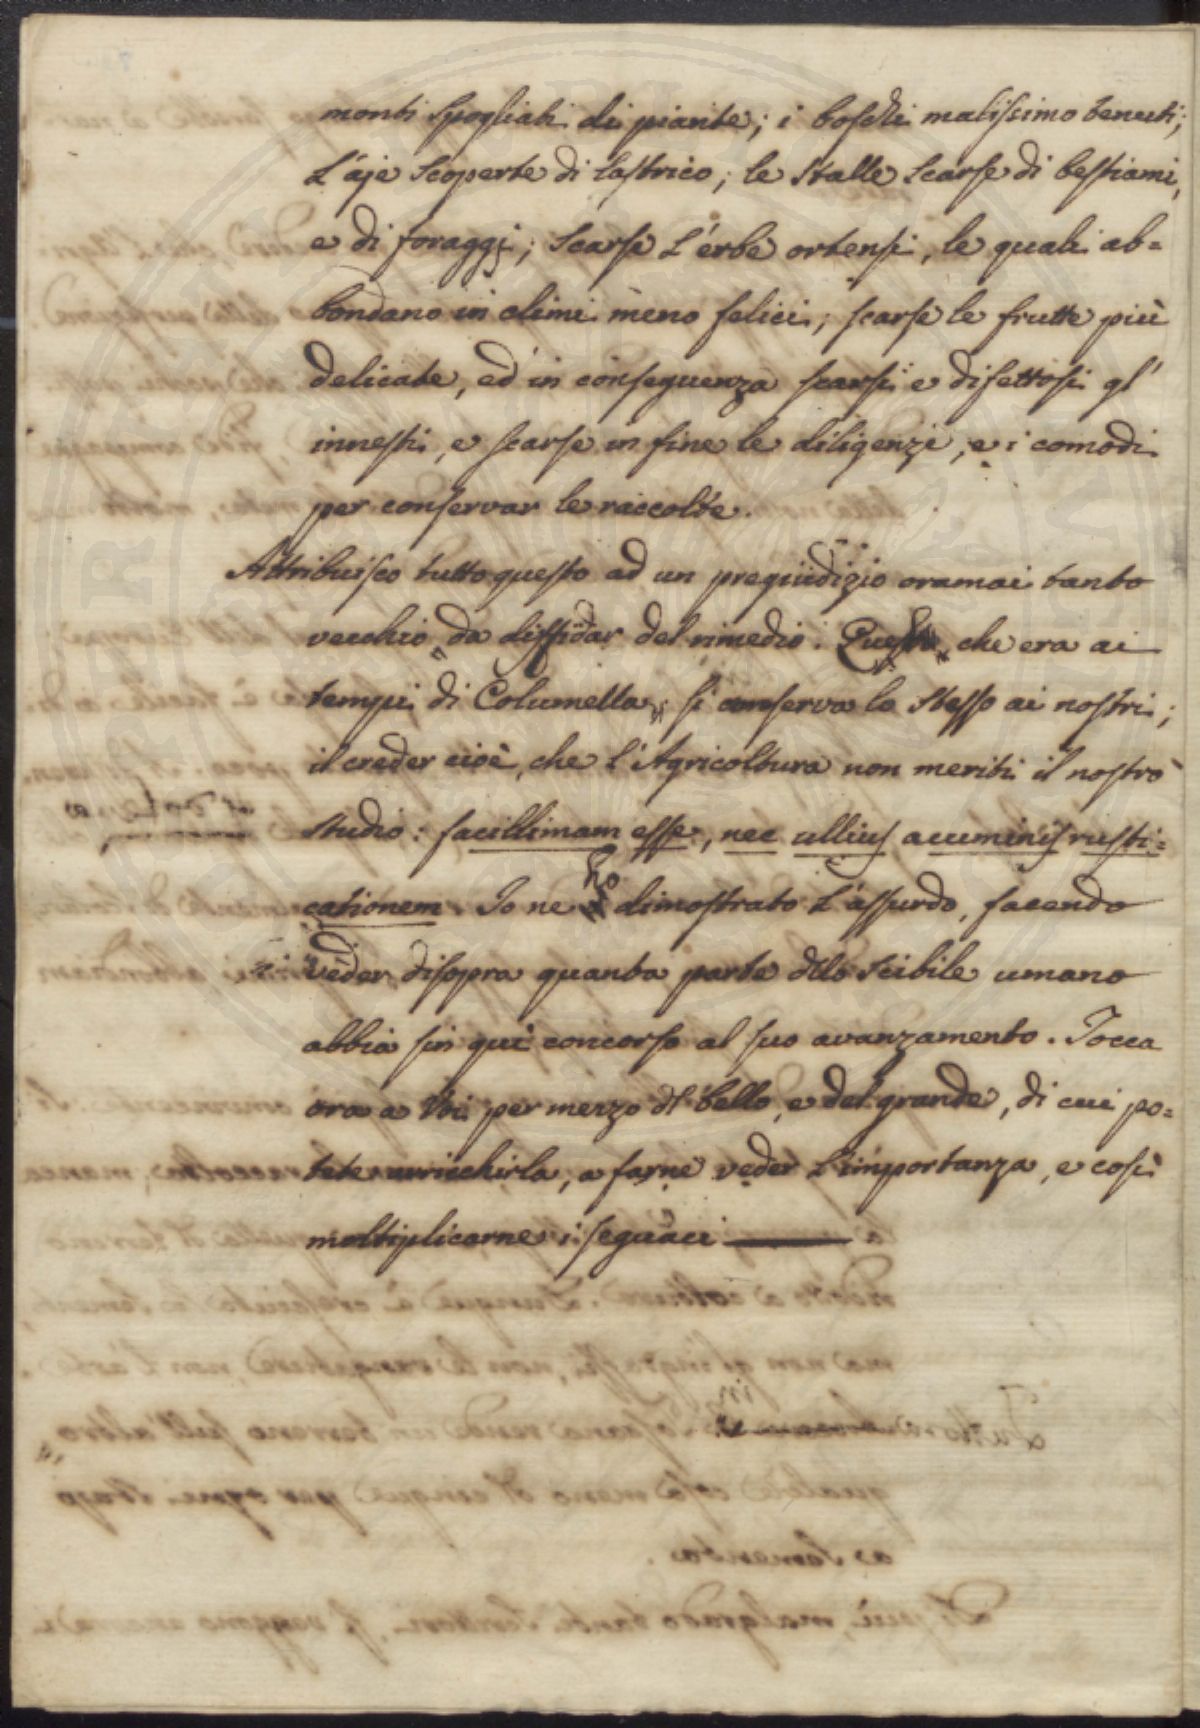 monti spogliati di piante; i boschi malissimo tenuti;
L'aje scoperte di lastrico; le stalle scarse di bestiami,
e di foraggi; scarse L'erbe ortensi, le quali ab=
bondano in climi meno felici; scarse le frutte più
delicate, ed in conseguenza scarsi e difettosi gl'
innesti, e scarse in fine le diligenze, e i comodi
per conservar le raccolte.
Attribuisco tutto questo ad un pregiudizio oramai tanto
vecchio da diffidar del rimedio. che era ai
tempi di Columella, si conserva lo stesso ai nostri;
il creder cioè, che l'Agricoltura non meriti il nostro
studio: facillimam esse, nec ullius acuminis rusti=
cationem. Io ne ho dimostrato L'assurdo, facendo
veder disopra quanta parte dello scibile umano
abbia sin quì concorso al suo avanzamento. Tocca
ora a Voi per mezzo del bello, e del grande, di cui po=
tete arricchirla, a farne veder L'importanza, e così
moltiplicarne i seguaci